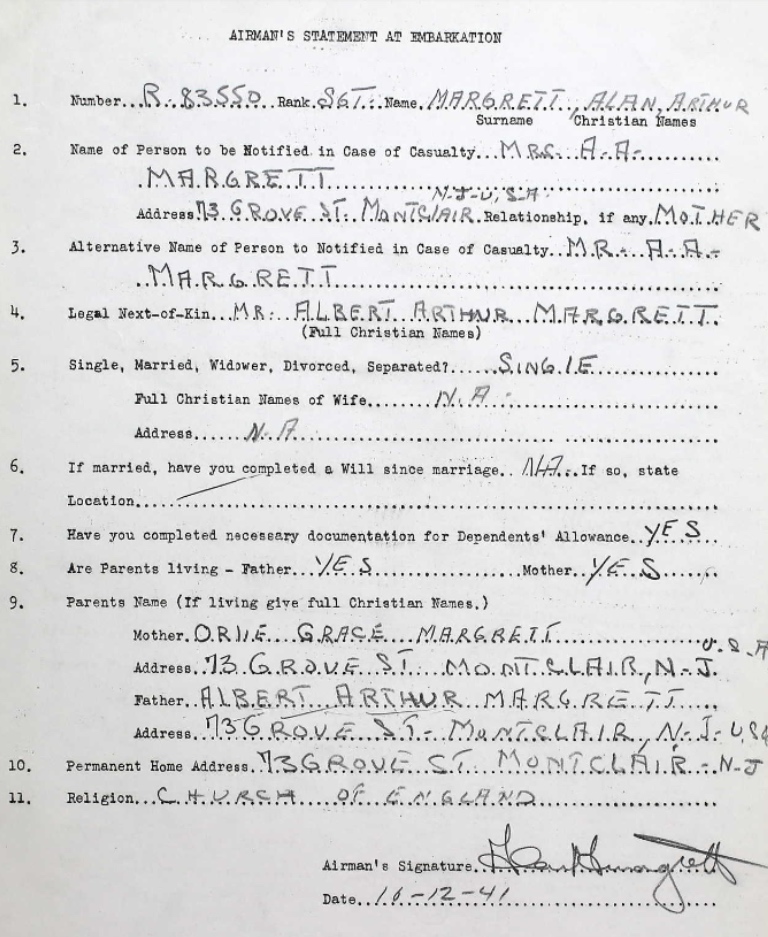 AIRMAN'S STATEMENT AT EMBARKATION
1. Number...R.83550..Rank.SGT...Name..MARGRETT, ALAN, ARTHUR
Surname Christian Names
2. Name of Person to be Notified in Case of Casualty...MRS. A.A.
MARGRETT
N.J. U.S.A.
Address 73 GROVE ST. MONTCLAIR. Relationship, if any. MOTHER
3. Alternative Name of Person to Notified in Case of Casualty..MR. A.A.
MARGRETT
4. Legal Next-of-Kin...MR. ALBERT ARTHUR MARGRETT.
(Full Christian Names)
5. Single, Married, Widower, Divorced, Separated?......SINGLE
Full Christian Names of Wife........N.A.
Address......N.A
6. If married, have you completed a Will since marriage.. N.A...If so, state
Location
7. Have you completed necessary documentation for Dependents' Allowance..YES
8. Are Parents living - Father...YES Mother..YES
9. Parents Name (If living give full Christian Names.)
Mother. GRACE MARGRETT
U.S.A
Address.73 GROVE ST. MONTCLAIR, N.J.
Father..ALBERT ARTHUR MARGRETT
Address..73 GROVE ST. MONTCLAIR, N.J. USA
10. Permanent Home Address.73 GROVE ST. MONTCLAIR. N-J
11. Religion...CHURCH OF ENGLAND
Airman's Signature
Date..16-12-41